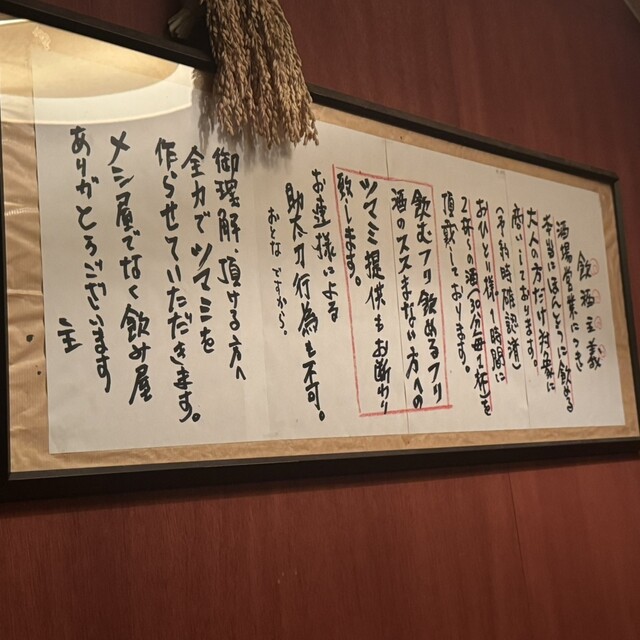 飲酒主義
酒場営業につき
本当にほんとーに飲める
大人の方だけお客に
商いしております。
(予約時確認済)
おひとり様1時間に
2杯〜の酒(30分毎1杯)を
頂戴しております。
飲むフリ飲めるフリ
酒のススまない方への
ツマミ提供もお断わり
致します。
お連れ様による
助太刀行為も不可。
おとなですから。
御理解頂ける方へ
全力でツマミを
作らせていただきます。
メシ屋でなく飲み屋
ありがとうございます
主